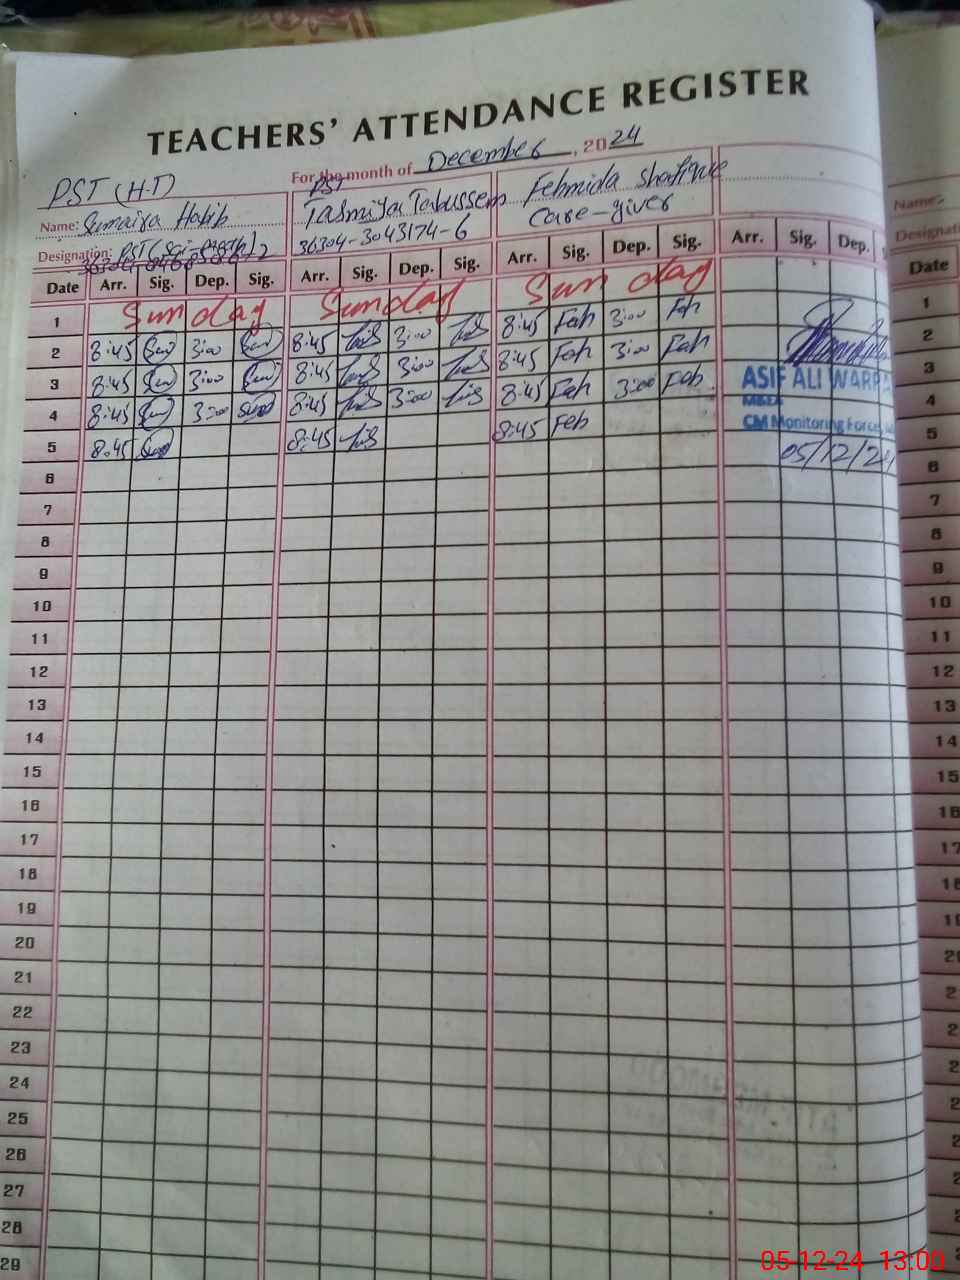 TEACHERS' ATTENDANCE REGISTER
For the month of December, 2024
PST (H-T) PST
Name: Sumaira Habib Tasmiya Tabussem Fehmida Shafique
Designation: PST (Sci-Math) 36304-3043174-6 Care-giver
Date Arr. Sig. Dep. Sig. Arr. Sig. Dep. Sig. Arr. Sig. Dep. Sig. Arr. Sig. Dep.
1 Sunday Sunday Sunday
2 8:45 3:00 8:45 3:00 8:45 Feh 3:00 Feh
3 8:45 3:00 8:45 3:00 8:45 Feh 3:00 Feh
4 8:45 3:00 8:45 3:00 8:45 Feh 3:00 Feh
5 8:45 8:45 8:45 Feh
ASIF ALI
MEA
CM Monitoring Force
05/12/24
6
7
8
9
10
11
12
13
14
15
16
17
18
19
20
21
22
23
24
25
26
27
28
29
Name:
Date
1
2
3
4
5
6
7
8
9
10
11
12
13
14
15
05-12-24 13:00